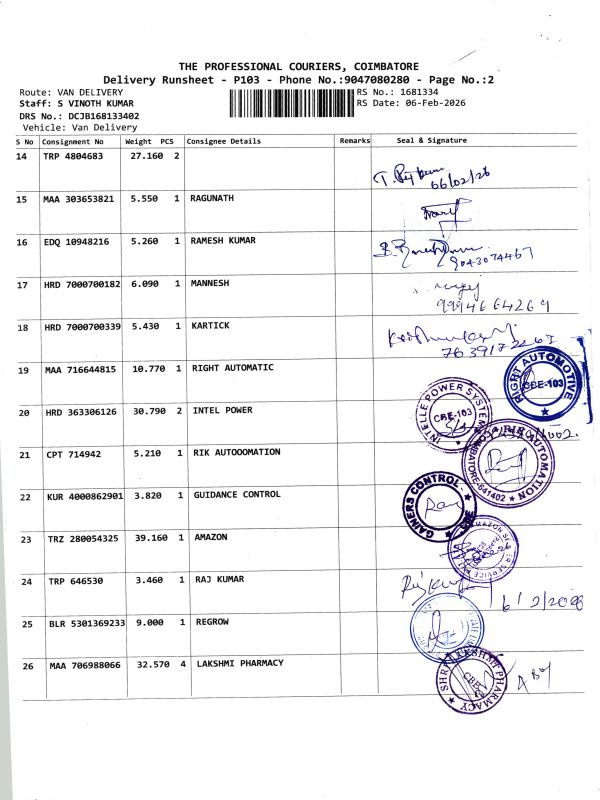 THE PROFESSIONAL COURIERS, COIMBATORE
Delivery Runsheet - P103 - Phone No.:9047080280 - Page No.:2
Route: VAN DELIVERY RS No.: 1681334
Staff: S VINOTH KUMAR RS Date: 06-Feb-2026
DRS No.: DCJB168133402
Vehicle: Van Delivery
S No Consignment No Weight PCS Consignee Details Remarks Seal & Signature
14 TRP 4804683 27.160 2
06/02/26
15 MAA 303653821 5.550 1 RAGUNATH
16 EDQ 10948216 5.260 1 RAMESH KUMAR
9043074467
17 HRD 7000700182 6.090 1 MANNESH
9994664269
18 HRD 7000700339 5.430 1 KARTICK
19 MAA 716644815 10.770 1 RIGHT AUTOMATIC
RIGHT AUTOMOTIVE CBE-103
20 HRD 363306126 30.790 2 INTEL POWER
INTELLE POWER SYSTEM CBE-103
21 CPT 714942 5.210 1 RIK AUTOOOMATION
RIK AUTOMATION COIMBATORE-641402
22 KUR 4000862901 3.820 1 GUIDANCE CONTROL
GAINERS CONTROL CBE
23 TRZ 280054325 39.160 1 AMAZON
24 TRP 646530 3.460 1 RAJ KUMAR
6/2/2026
25 BLR 5301369233 9.000 1 REGROW
26 MAA 706988066 32.570 4 LAKSHMI PHARMACY
SHRI LAKSHMI PHARMACY CBE